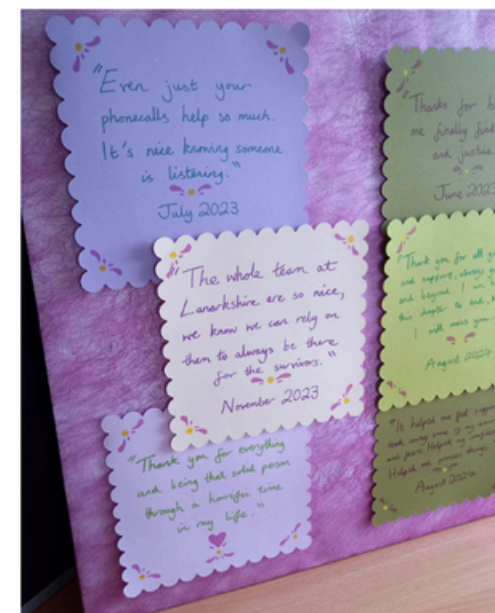 "Even just your
phonecalls help so much.
It's nice knowing someone
is listening."
July 2023
"The whole team at
Lanarkshire are so nice,
we know we can rely on
them to always be there
for the survivors."
November 2023
"Thank you for everything
and being that solid person
through a horrific time
in my life."
"Thanks for
me finally
and justice
June 2023
"Thank you for all
and support, always
and beyond. I
this chapter to end,
I will miss you.
August 2024
"It helped me feel
Helped me process things.
August 2024